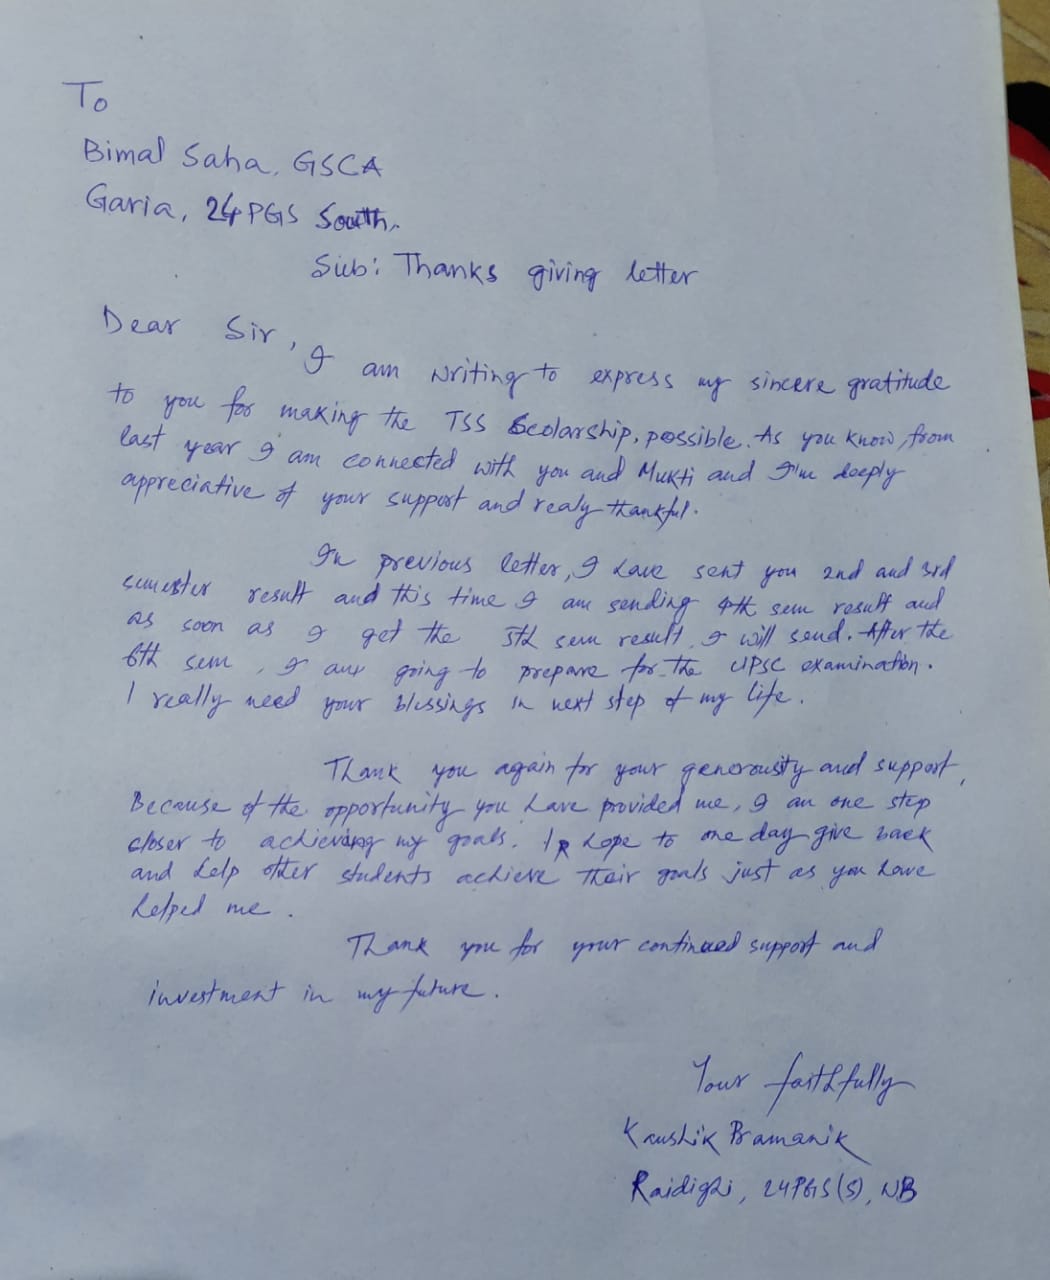 To
Bimal Saha, GSCA
Garia, 24 PGS South.
Sub: Thanks giving letter
Dear Sir,
I am writing to express my sincere gratitude
to you for making the TSS Scolarship, possible. As you know, from
last year I am connected with you and Mukti and I'm deeply
appreciative of your support and realy thankful.
In previous letter, I have sent you 2nd and 3rd
semester result and this time I am sending 4th sem result and
as soon as I get the 5th sem result, I will send. After the
6th sem, I am going to prepare for the UPSC examination.
I really need your blessings in next step of my life.
Thank you again for your generousity and support,
Because of the opportunity you have provided me, I am one step
closer to achieving my goals. I hope to one day give back
and help other students achieve their goals just as you have
helped me.
Thank you for your continued support and
investment in my future.
Your faithfully
Kaushik Pramanik
Raidighi, 24 PGS (S), WB